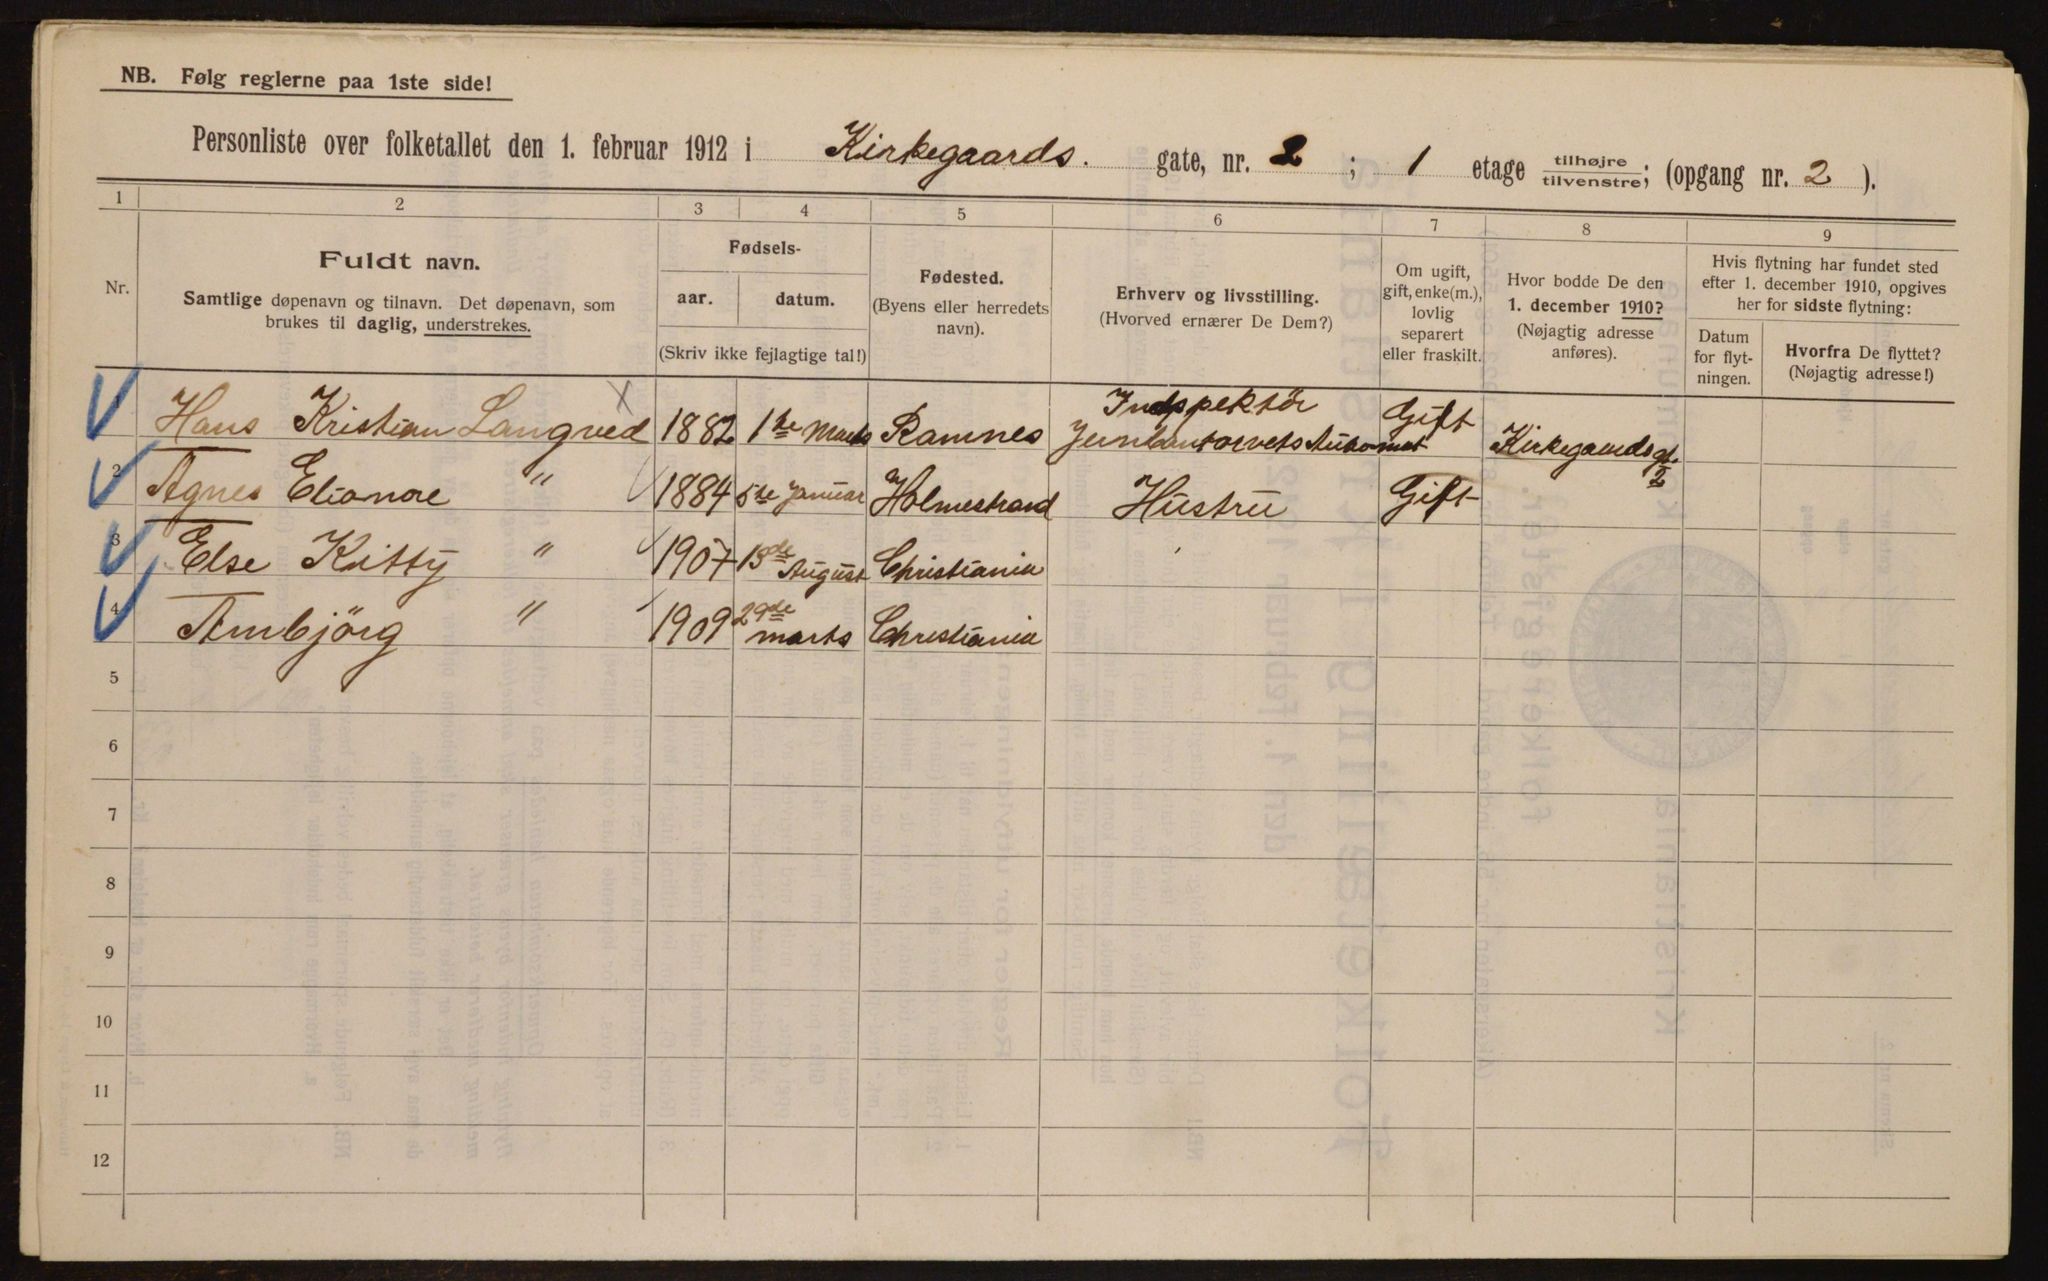 NB. Følg reglerne paa 1ste side!
Personliste over folketallet den 1. februar 1912 i Kirkegaards. gate, nr. 2 ; 1 etage tilhøjre/tilvenstre; (opgang nr. 2 ).
1 2 3 4 5 6 7 8 9
Nr.
Fuldt navn.
Samtlige døpenavn og tilnavn. Det døpenavn, som
brukes til daglig, understrekes.
Fødsels-
aar. datum.
(Skriv ikke fejlagtige tal!)
Fødested.
(Byens eller herredets
navn).
Erhverv og livsstilling.
(Hvorved ernærer De Dem?)
Om ugift,
gift, enke(m.),
lovlig
separert
eller fraskilt.
Hvor bodde De den
1. december 1910?
(Nøjagtig adresse
anføres).
Hvis flytning har fundet sted
efter 1. december 1910, opgives
her for sidste flytning:
Datum
for flyt-
ningen.
Hvorfra De flyttet?
(Nøjagtig adresse!)
Hans Kristian Langved 1882 1ste Marts Ramnes Indspektör Jernbantorvets Automat Gift Kirkegaardsgt. 2
2 Agnes Elionore " 1884 5te Januar Holmestrand Hustru Gift
3 Else Kitty " 1907 13de August Christiania
4 Arnbjörg " 1909 29de marts Christiania
5
6
7
8
9
10
11
12